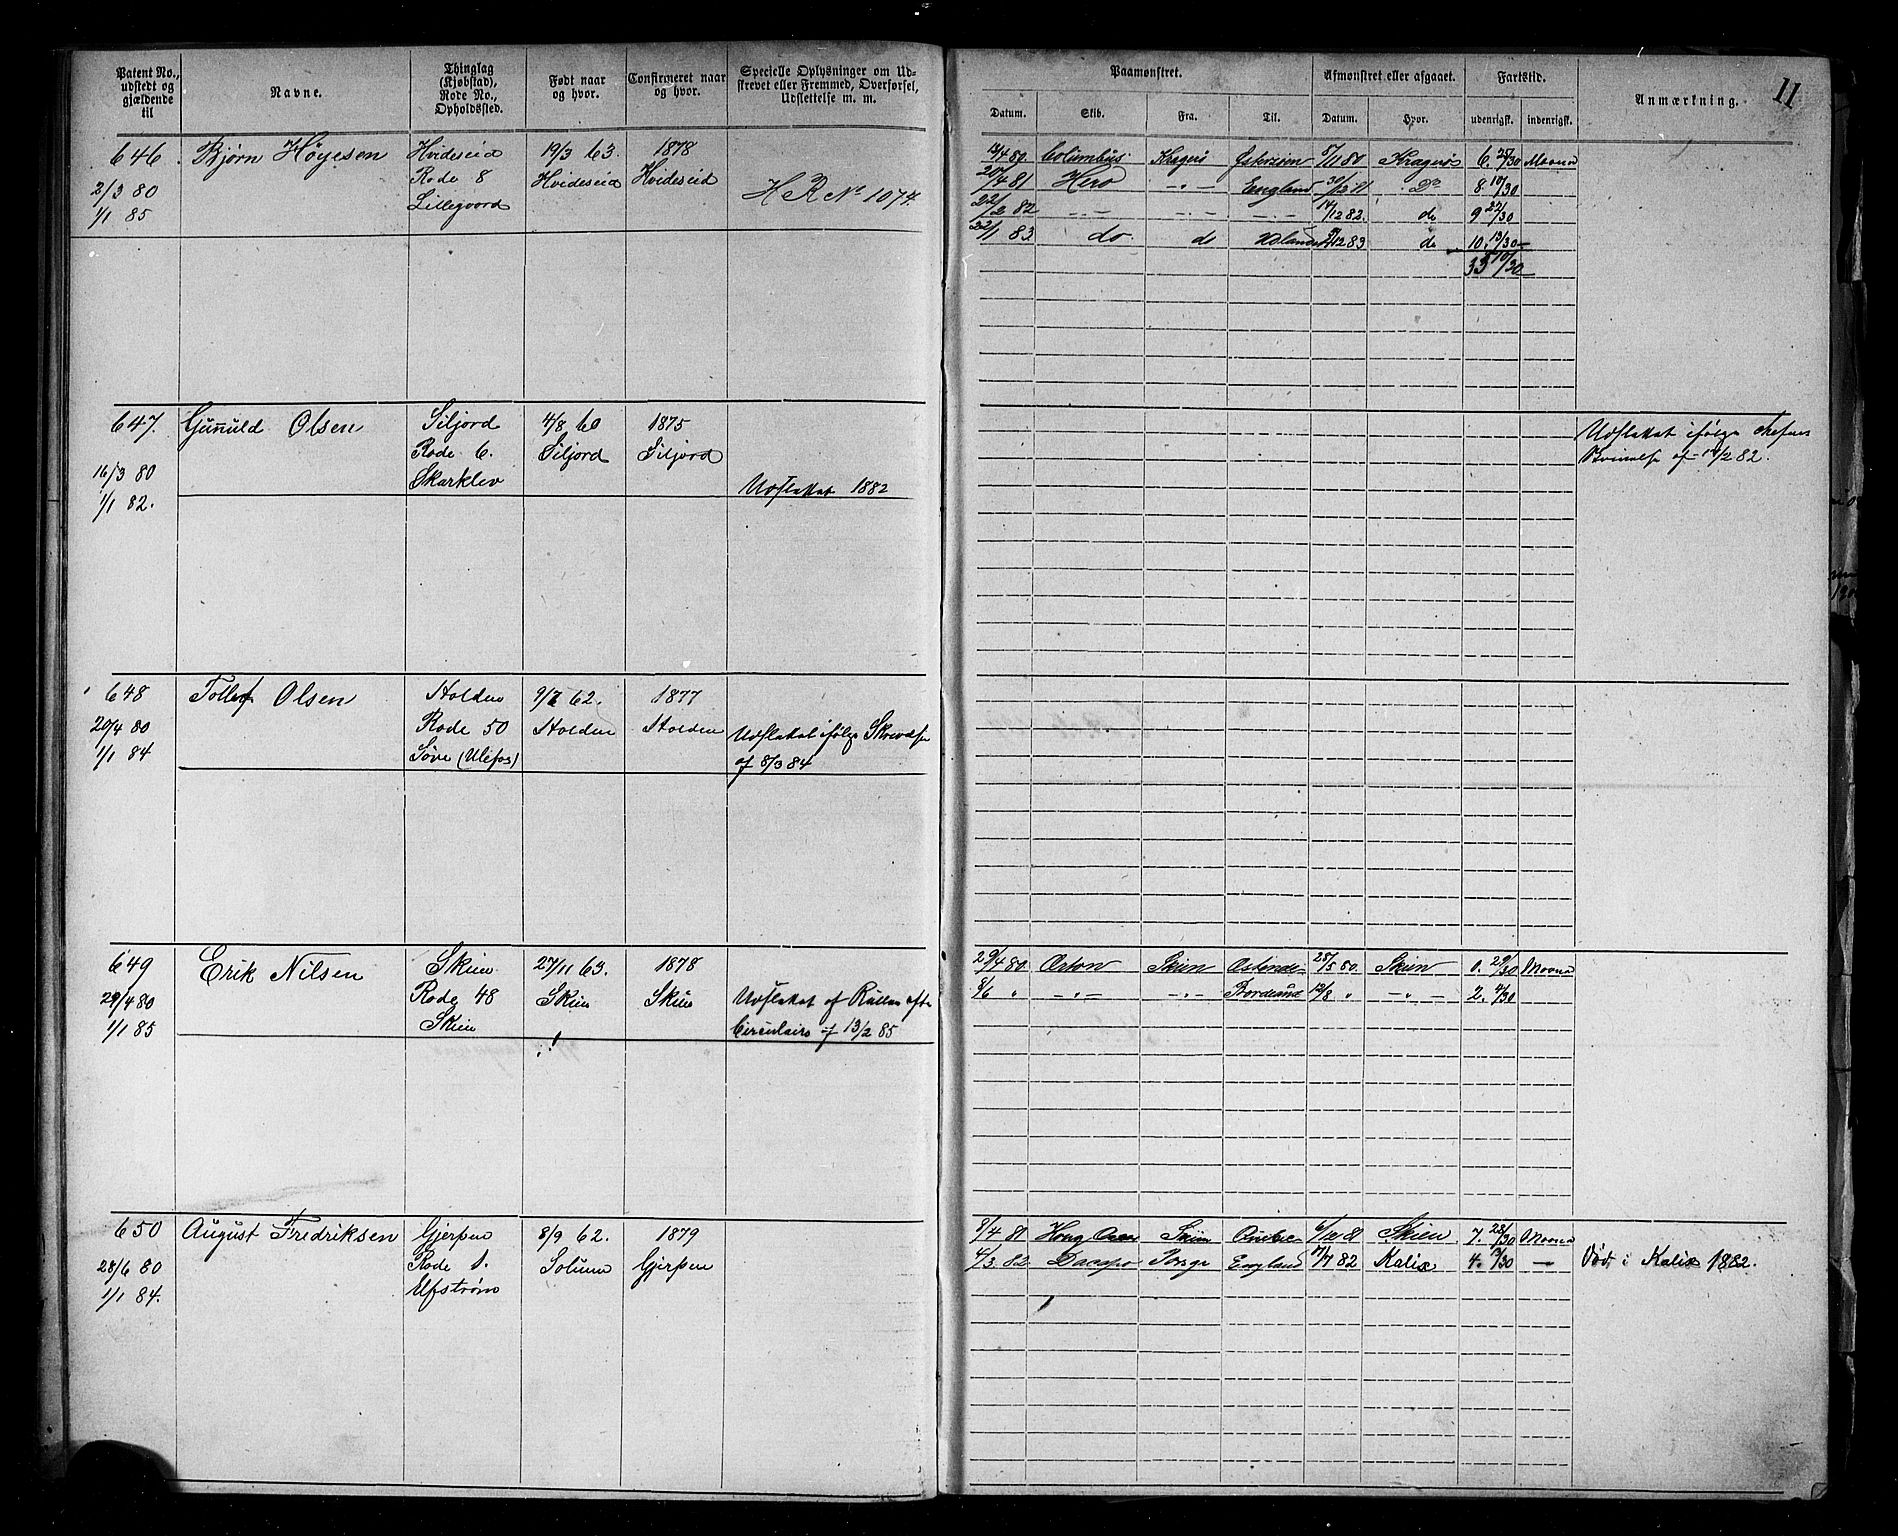 11
Patent No., udstedt og gjældende til
Navne.
Thinglag (Kjøbstad), Rode No., Opholdssted.
Født naar og hvor.
Confirmeret naar og hvor.
Specielle Oplysninger om Udskrevet eller Fremmed, Overførsel, Udslettelse m. m.
Paamønstret.
Afmønstret eller afgaaet.
Fartstid.
Anmærkning.
Datum. Skib. Fra. Til. Datum. Hvor. udenrigsk. indenrigsk.
646. Bjørn Høyesen Hvideseid 19/3 63. 1878
Rode 8 Hvideseid Hvideseid
2/3 80 Lillegaard H R No 1074.
1/1 85
80 Columbus Kragerø 80 Kragerø 6. 25/30
20/4 81 Hero - " - England Do 8 10/30
22/2 82 - " - - " - - " - 17/12 82. do 9 22/30
22/1 83. do. do 12 83 do 10. 13/30
33 10/30
647. Gunuld Olsen Siljord 4/8 60 1875
Rode 6. Siljord Siljord
16/3 80 Skarklev Udslettet 1882
1/1 82.
Udslettet ifølge
af 82.
648 Tollef Olsen Holden 9/7 62. 1877
20/4 80 Rode 50 Holden Holden Udslettet ifølge Skrivelse
1/1 84 Søve (Ulefos) af 8/3 84
649 Erik Nilsen Skien 27/11 63. 1878
29/4 80 Rode 48 Skien Skien Udslettet af Rullen efter
1/1 85 Skien Circulaire af 13/2 85
29/4 80 Skien Ostende 25/5 80. Skien 0. 29/30
8/6 " - " - - " - 12/8 " - " - 2. 4/30
650 August Fredriksen Gjerpen 8/9 62. 1879
28/6 80 Rode 1. Solum Gjerpen
1/1 84. Elfstrøm
8/4 81 Skien 6/10 81 Skien 7. 28/30
4/3 82 Dacapo England 82 Kalix 4. Død i Kalix 1882.